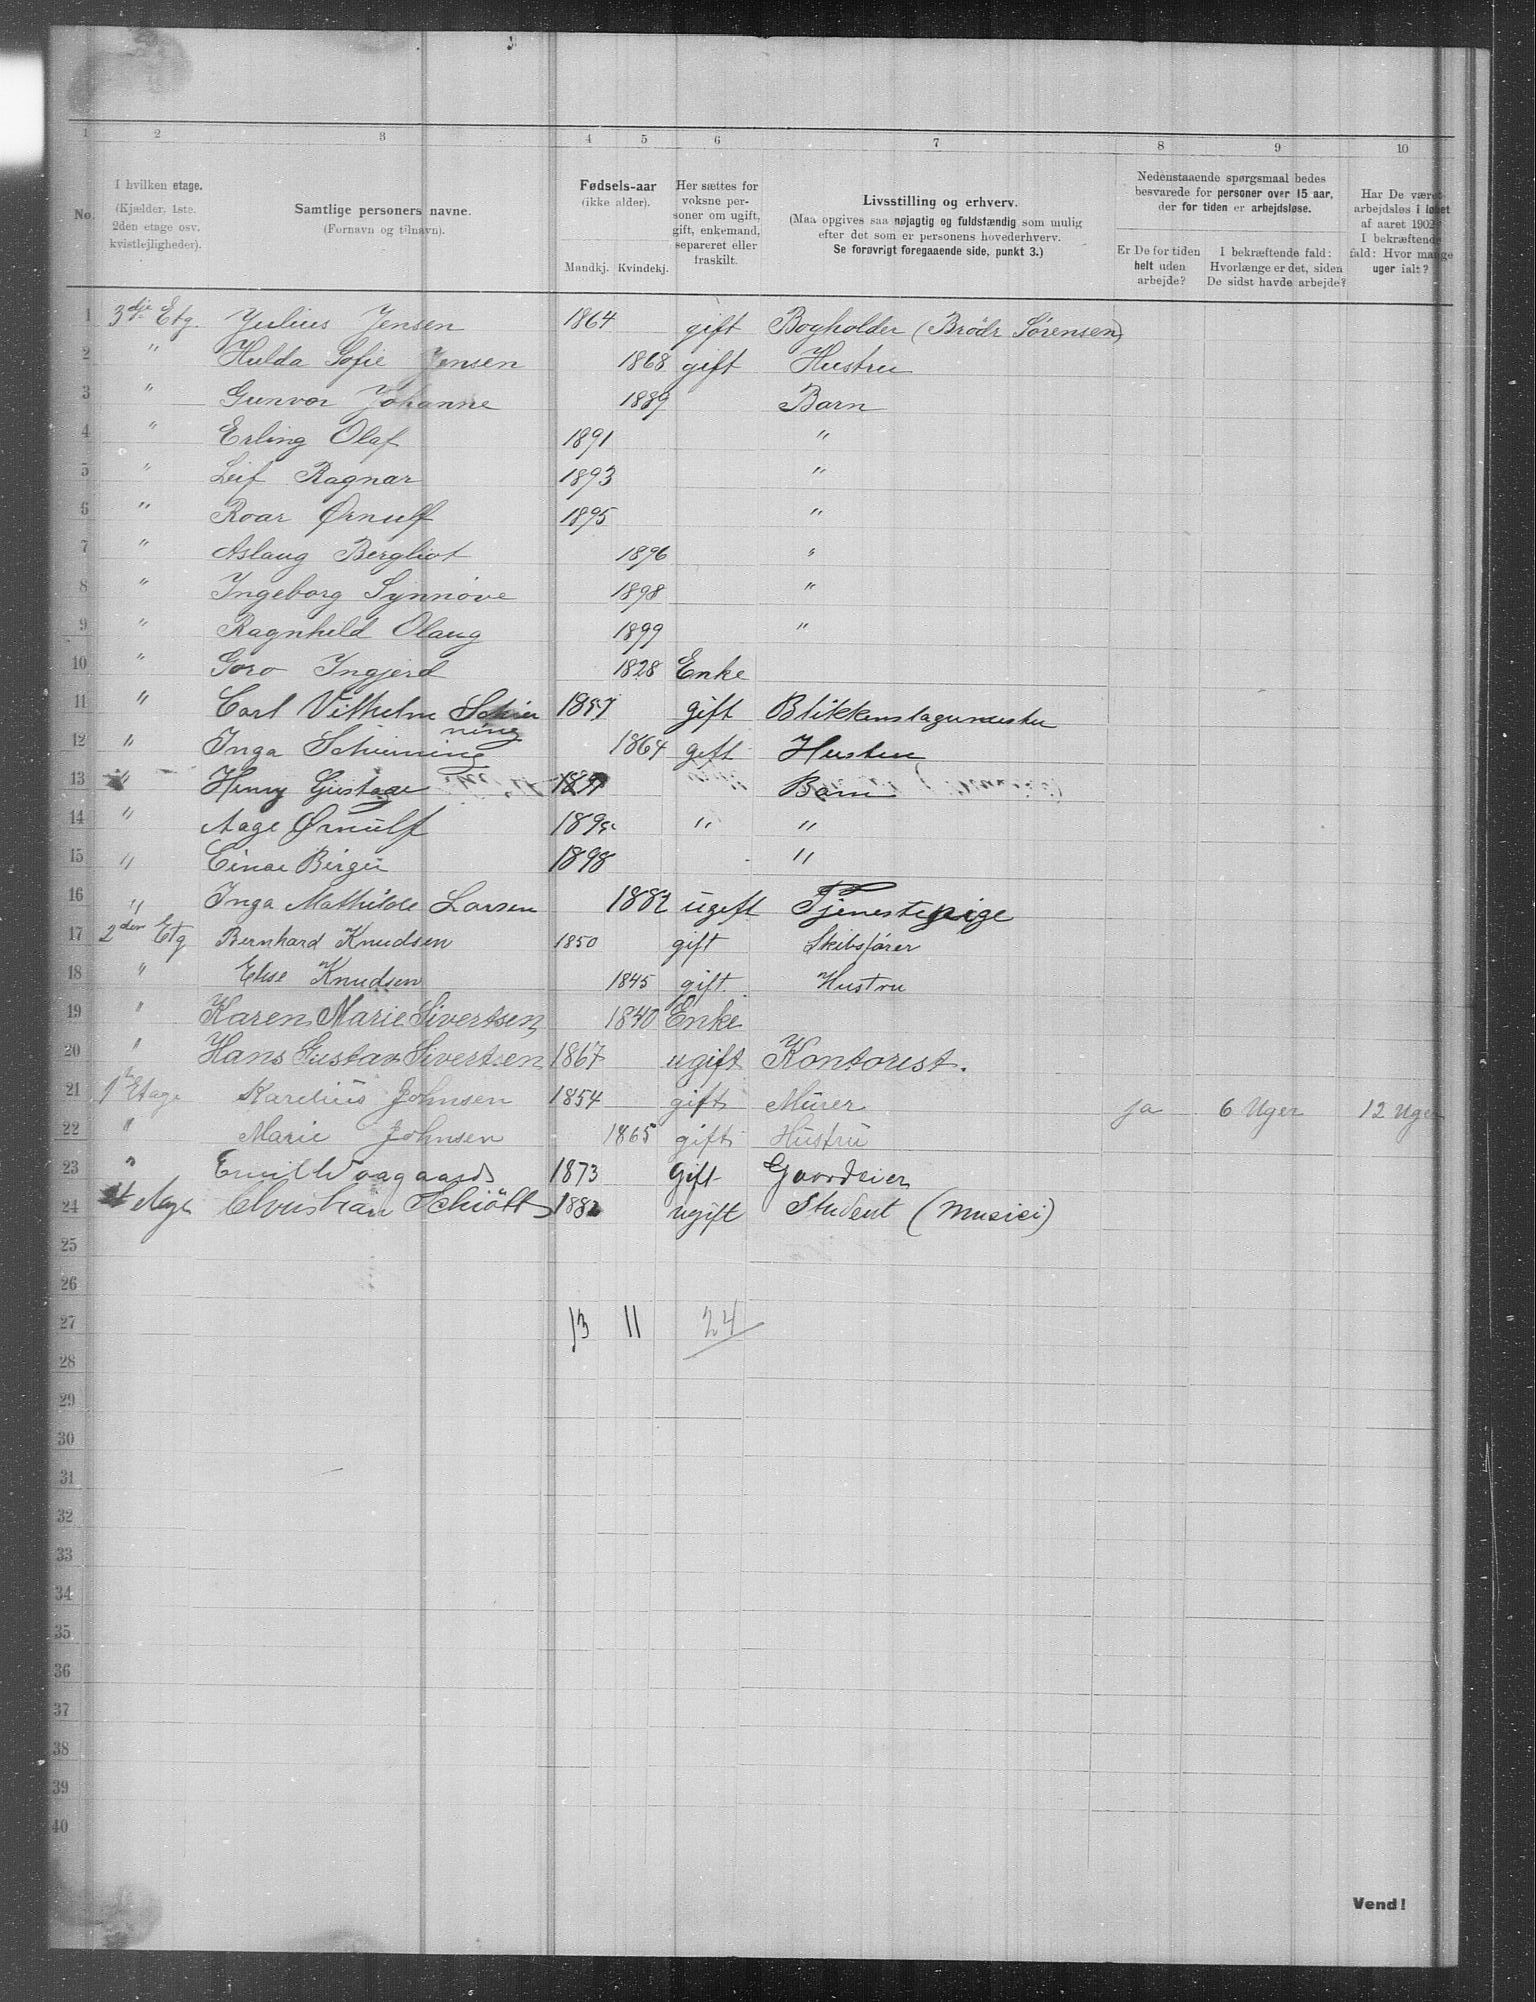 1 2 3 4 5 6 7 8 9 10
No.
I hvilken etage.
(Kjælder, 1ste.
2den etage osv.
kvistleiligheder).
Samtlige personers navne.
(Fornavn og tilnavn).
Fødsels-aar
(ikke alder).
Mandkj. Kvindekj.
Her sættes for
voksne per-
soner om ugift,
gift, enkemand,
separeret eller
fraskilt.
Livsstilling og erhverv.
(Maa opgives saa nøjagtig og fuldstændig som mulig
efter det som er personens hovederhverv.
Se forøvrigt foregaaende side, punkt 3.)
Nedenstaaende spørgsmaal bedes
besvarede for personer over 15 aar,
der for tiden er arbejdsløse.
Er De for tiden
helt uden
arbejde?
I bekræftende fald:
Hvorlænge er det, siden
De sidst havde arbejde?
Har De været
arbejdsløs i løbet
af aaret 1902?
I bekræftende
fald: Hvor mange
uger ialt?
1 3dje Etg. Julius Jensen 1864 gift Bogholder (Brødr Sørensen)
2 " Hulda Sofie Jensen 1868 gift Hustru
3 " Gunvor Johanne 1889 Barn
4 " Erling Olaf 1891 "
5 " Leif Ragnar 1893 "
6 " Roar Ørnulf 1895 "
7 " Aslaug Bergliot 1896 "
8 " Ingeborg Synnöve 1898 "
9 " Ragnhild Olaug 1899 "
10 " Goro Ingjerd 1828 Enke
11 " Carl Vilhelm Schier 1857 gift Blikkenslagermester
ning
12 " Inga Schierning 1864 gift Hustru
13 " Henry Gustav Barn
14 " Aage Ørnulf " "
15 " Einar Birger 1898 "
16 " Inga Mathilde Larsen 1882 ugift Tjenestepige
17 2den Etg Bernhard Knudsen 1850 gift Skibsfører
18 " Elise Knudsen 1845 gift. Hustru
19 " Karen Marie Sivertsen 1840 Enke
20 " Hans Gustav Sivertsen 1867 ugift Kontorist.
21 1ste Etage Karelius Johnsen 1854 gift Murer ja 6 Uger 12 Uger
22 " Marie Johnsen 1865 gift Hustru
23 " Emil Waagaard 1873 Gift Gaardeier
24 Christian Schiött 1882 ugift Student (Musici)
25
26
27 13 11 24
28
29
30
31
32
33
34
35
36
37
38
39
40
Vend!